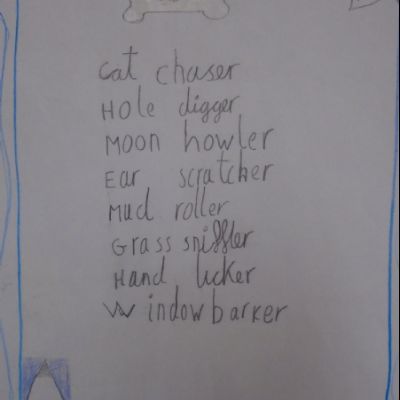 Cat chaser
Hole digger
Moon howler
Ear scratcher
Mud roller
Grass sniffler
Hand licker
Window barker